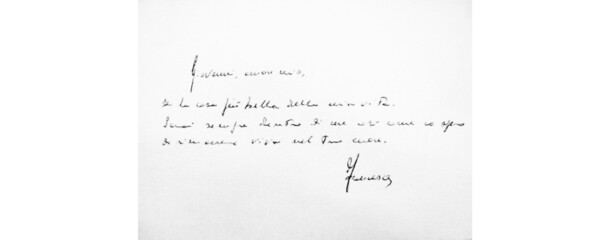 Giovanni, amore mio,
sei la cosa più bella della mia vita.
Sarai sempre dentro di me così come io spero
di rimanere viva nel tuo cuore.
Francesca